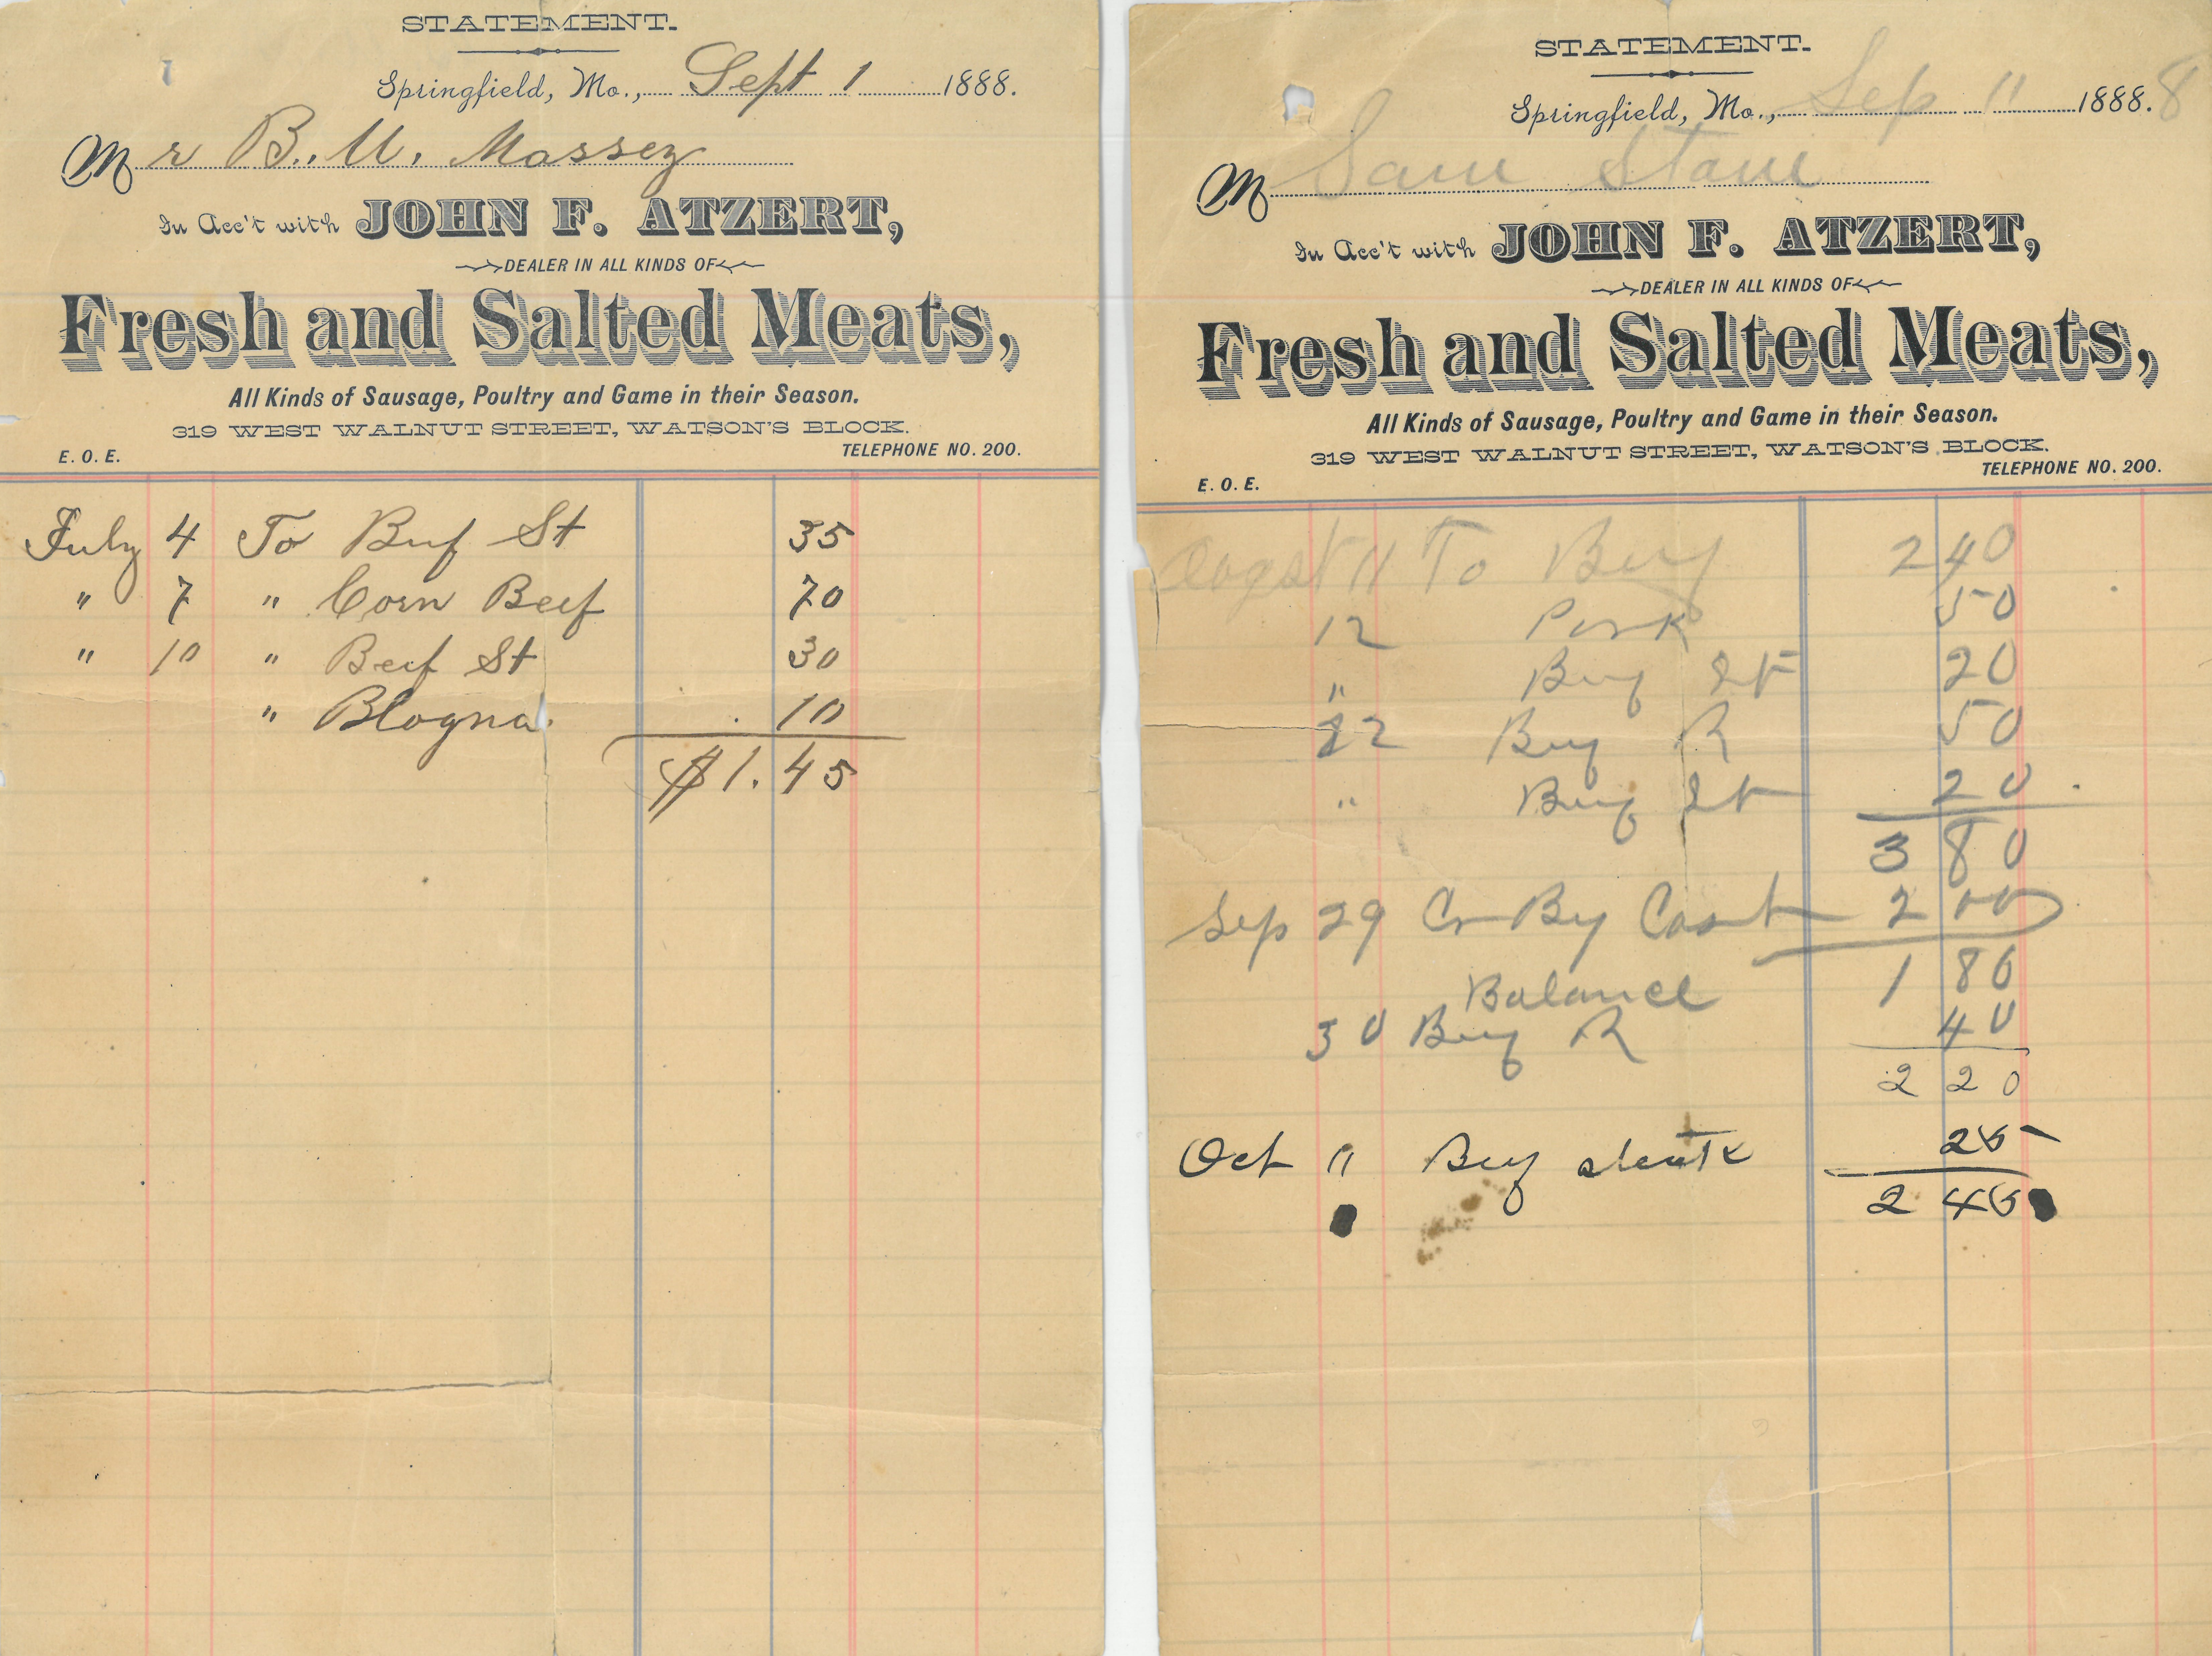 STATEMENT.
Springfield, Mo., Sept 1 1888.
Mr B. U. Massey
In Acc't with JOHN F. ATZERT,
DEALER IN ALL KINDS OF
Fresh and Salted Meats,
All Kinds of Sausage, Poultry and Game in their Season.
319 WEST WALNUT STREET, WATSON'S BLOCK.
E. O. E. TELEPHONE NO. 200.
July 4 To Buf St 35
" 7 " Corn Beef 70
" 10 " Beef St 30
" Blogna 10
$1.45
STATEMENT.
Springfield, Mo., Sep 11 1888. 8
M Sam
In Acc't with JOHN F. ATZERT,
DEALER IN ALL KINDS OF
Fresh and Salted Meats,
All Kinds of Sausage, Poultry and Game in their Season.
319 WEST WALNUT STREET, WATSON'S BLOCK.
E. O. E. TELEPHONE NO. 200.
11 To 2 40
12 Pork 50
" St 20
22 R 50
" St 20
3 80
Sep 29 Cr By Cash 2 00
Balance 1 80
30 R 40
2 20
Oct " 25
2 45